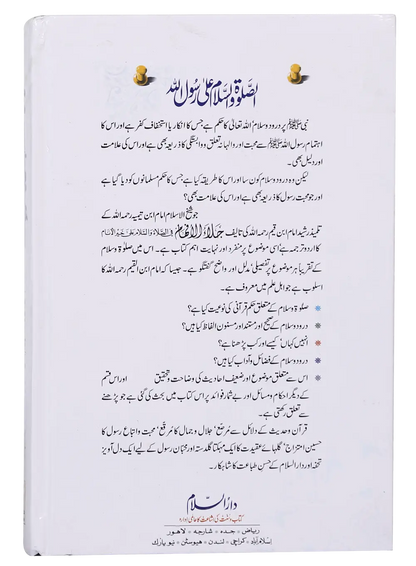 الصلوٰۃ والسلام علیٰ رسول اللہ
نبی ﷺ پر درود وسلام اللہ تعالیٰ کا حکم ہے جس کا انکار یا استخفاف کفر ہے اور اس کا
اہتمام رسول اللہ ﷺ سے محبت اور والہانہ تعلق و وابستگی کا ذریعہ بھی ہے اور اس کی علامت
اور دلیل بھی۔
لیکن وہ درود وسلام کون سا اور اس کا طریقہ کیا ہے جس کا حکم مسلمانوں کو دیا گیا ہے
اور جو محبت رسول کا ذریعہ بھی ہے اور اس کی علامت بھی؟
جو شیخ الاسلام امام ابن تیمیہ رحمہ اللہ کے
تلمیذ رشید امام ابن قیم رحمہ اللہ کی تالیف جلاء الافہام فی الصلاۃ والسلام علی خیر الانام
کا اردو ترجمہ ہے اسی موضوع پر منفرد اور نہایت اہم کتاب ہے۔ اس میں صلوٰۃ وسلام
کے تقریباً ہر موضوع پر تفصیلی، مدلل اور واضح گفتگو ہے۔ جیسا کہ امام ابن القیم رحمہ اللہ کا
اسلوب ہے جو اہل علم میں معروف ہے۔
صلوٰۃ وسلام کے متعلق حکم قرآنی کی نوعیت کیا ہے؟
درود وسلام کے صحیح اور مستند اور مسنون الفاظ کیا ہیں؟
انہیں کہاں، کیسے اور کب پڑھنا ہے؟
درود وسلام کے فضائل و آداب کیا ہیں؟
اس سے متعلق موضوع اور ضعیف احادیث کی وضاحت و تحقیق اور اس قسم
کے دیگر احکام و مسائل اور بے شمار فوائد پر اس کتاب میں بحث کی گئی ہے جو پڑھنے
سے تعلق رکھتی ہے۔
قرآن وحدیث کے دلائل سے مرصّع، جلال و جمال کا مرقع، محبت و اتباع رسول کا
حسین امتزاج، گلہائے عقیدت کا ایک مہکتا گلدستہ اور محبّان رسول کے لیے ایک دل آویز
تحفہ اور دارالسلام کے حسن طباعت کا شاہکار۔
دارالسلام
کتاب و سنت کی اشاعت کا عالمی ادارہ
ریاض • جدہ • شارجہ • لاہور
اسلام آباد • کراچی • لندن • ہیوسٹن • نیو یارک